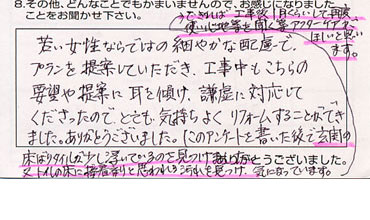 8.その他、どんなことでもかまいませんので、お感じになりました
ことをお聞かせ下さい。
できれば、工事後1月くらいして再度
使い心地等を聞く等アフターケアが
ほしいと思い
ます。
若い女性ならではの細やかな配慮で、
プランを提案していただき、工事中もこちらの
要望や提案に耳を傾け、謙虚に対応して
くださったので、とても気持ちよくリフォームすることができ
ました。ありがとうございました。(このアンケートを書いた後で玄関の
床ばりタイルが少し浮いているのを見つけ
ありがとうございました。
又トイレの床に接着剤と思われる汚れを見つけ、気になっています。)